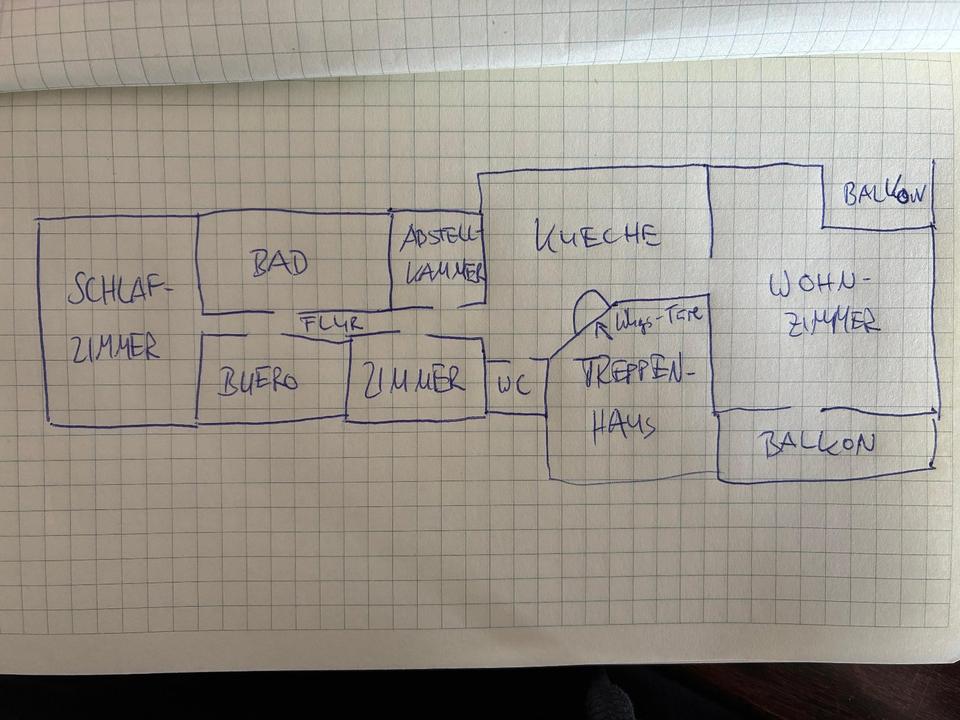 BALKON
KUECHE
ABSTELL-
KAMMER
BAD
SCHLAF-
ZIMMER
WOHN-
ZIMMER
FLUR
Whgs-Türe
BUERO
ZIMMER
WC
TREPPEN-
HAUS
BALKON